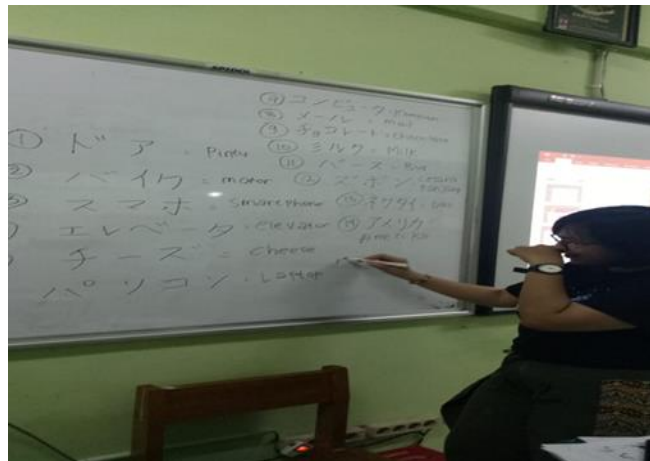 ① ドア = Pintu
② バイク = motor
③ スマホ = smartphone
エレベータ = elevator
チーズ = cheese
パソコン = Laptop
コンピュータ
⑧ メール = mail
⑨ チョコレート =
⑩ ミルク = Milk
⑪ バース = Bus
⑫ ズボン =
⑬ ネクタイ =
⑭ アメリカ